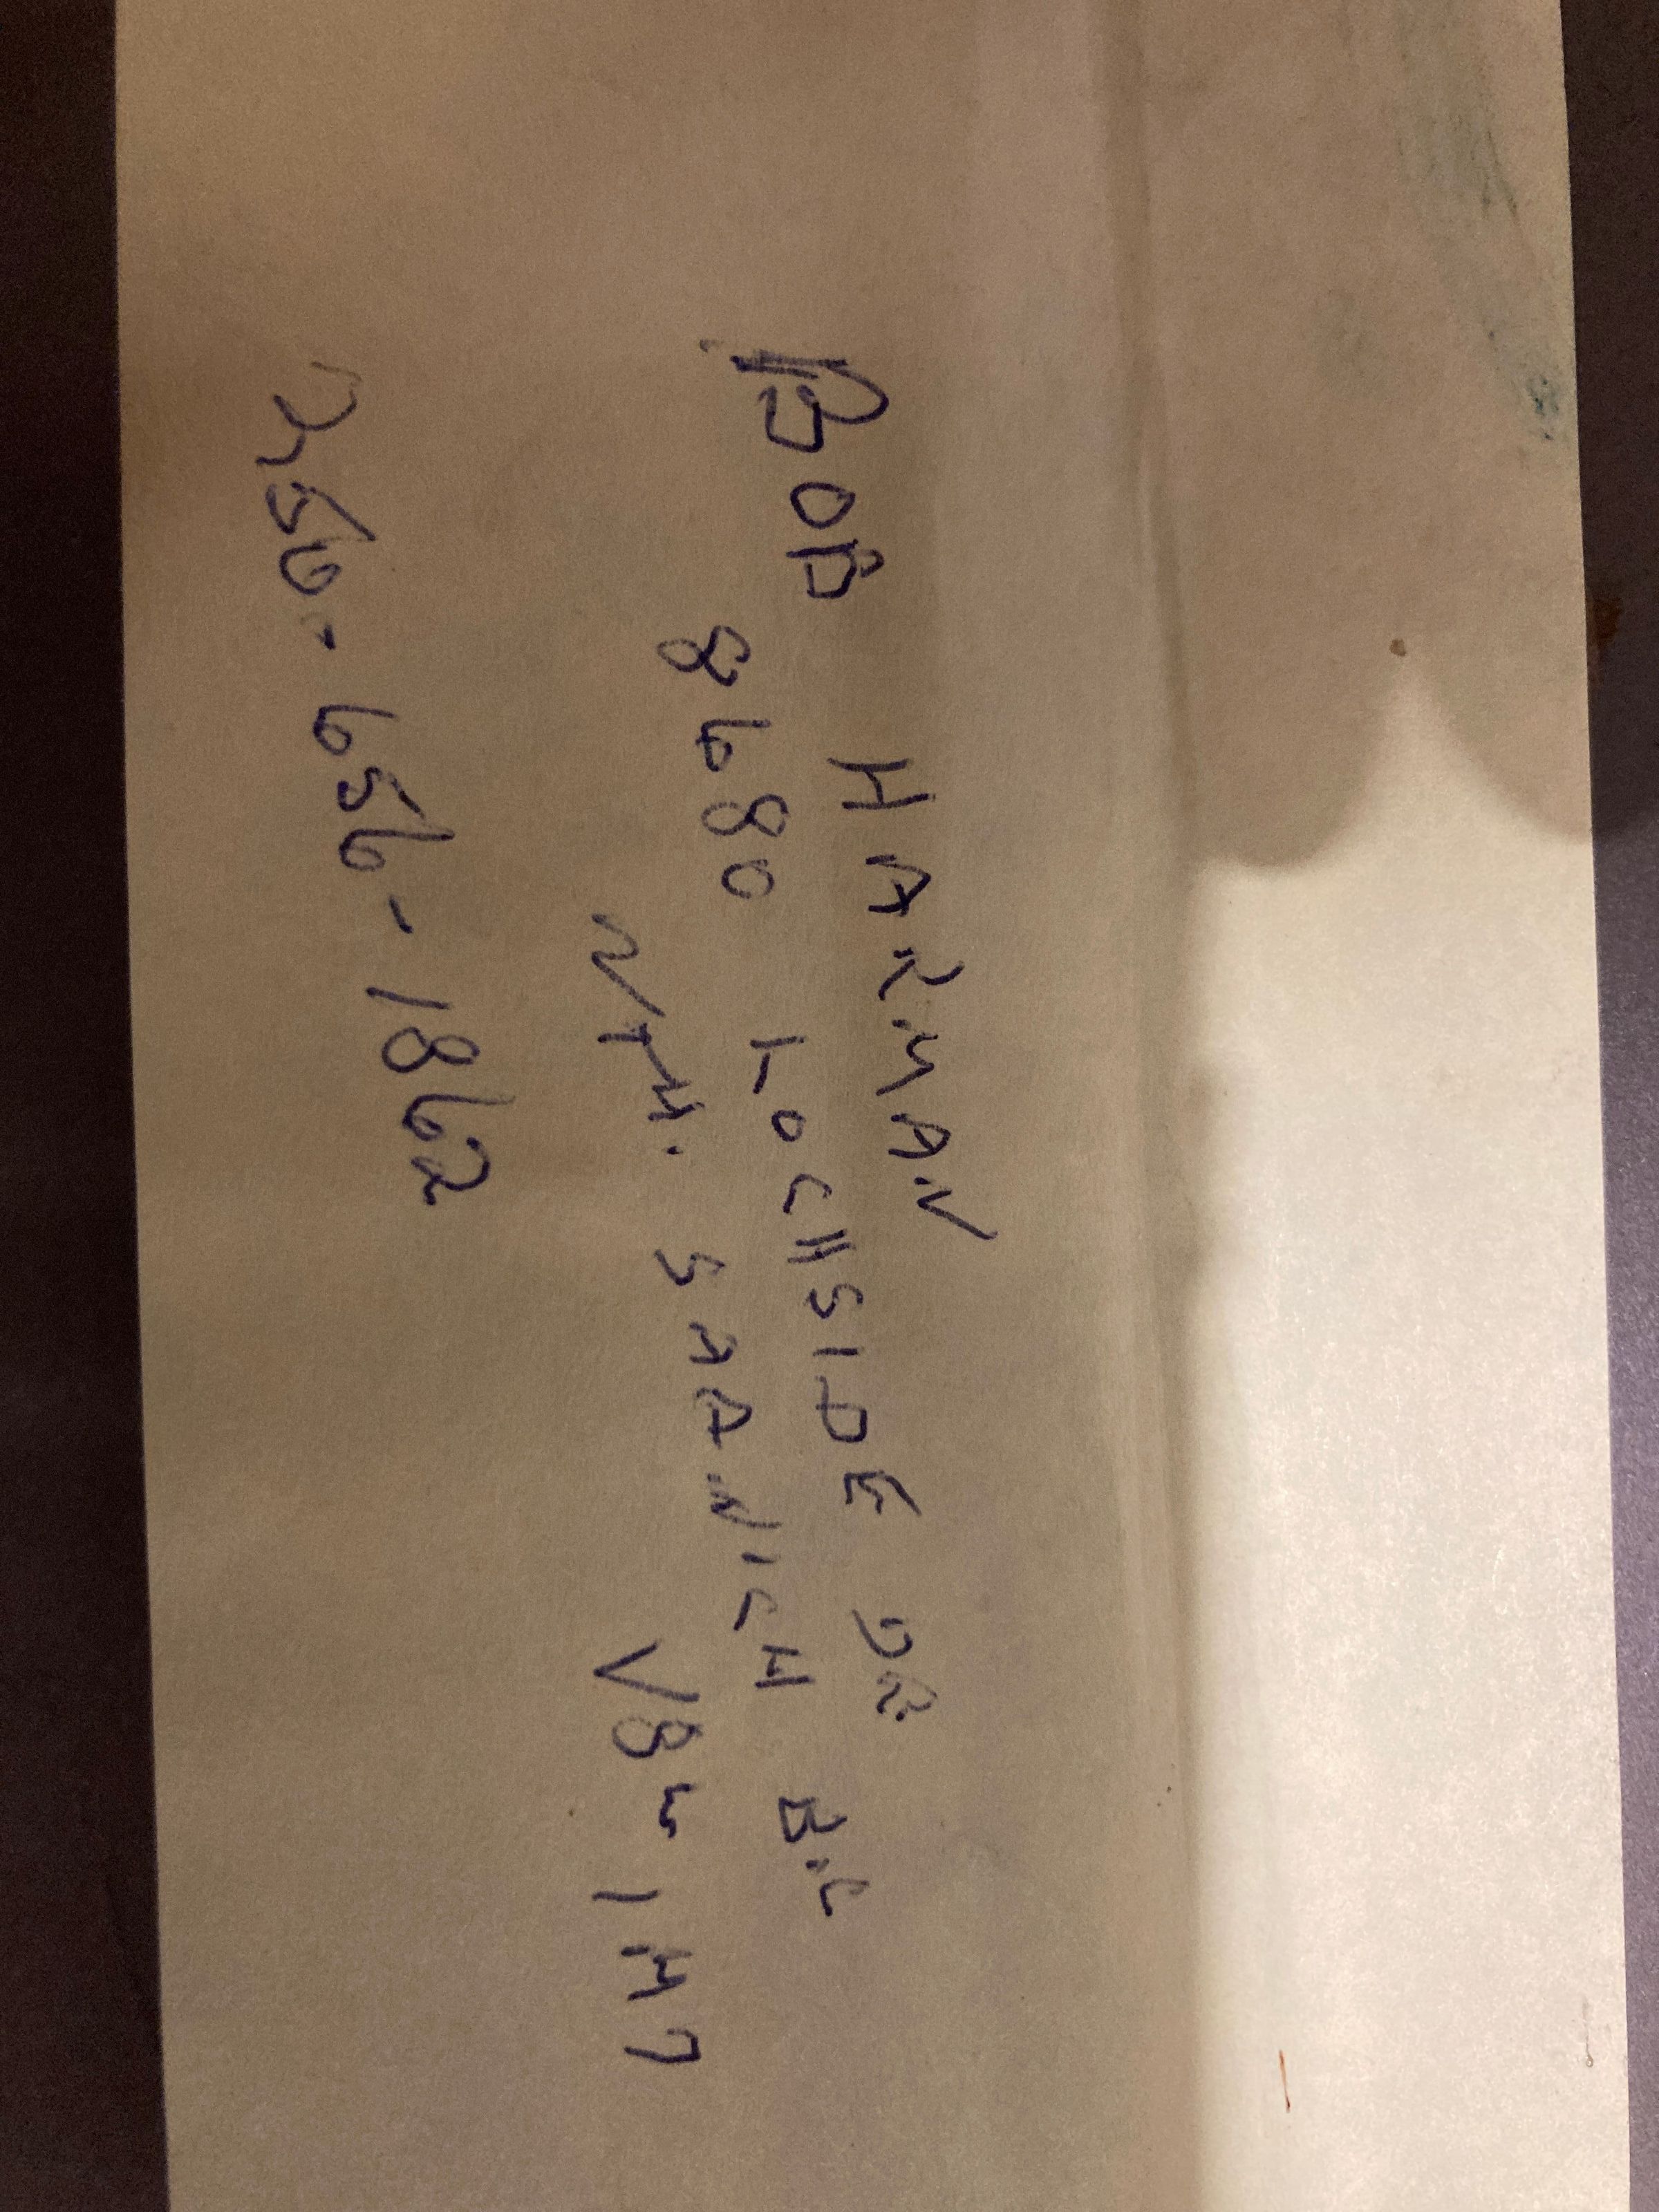 BOB HARMAN
8680 LOCHSIDE DR
NTH. SAANICH B.C
V8L 1M7
250-656-1862